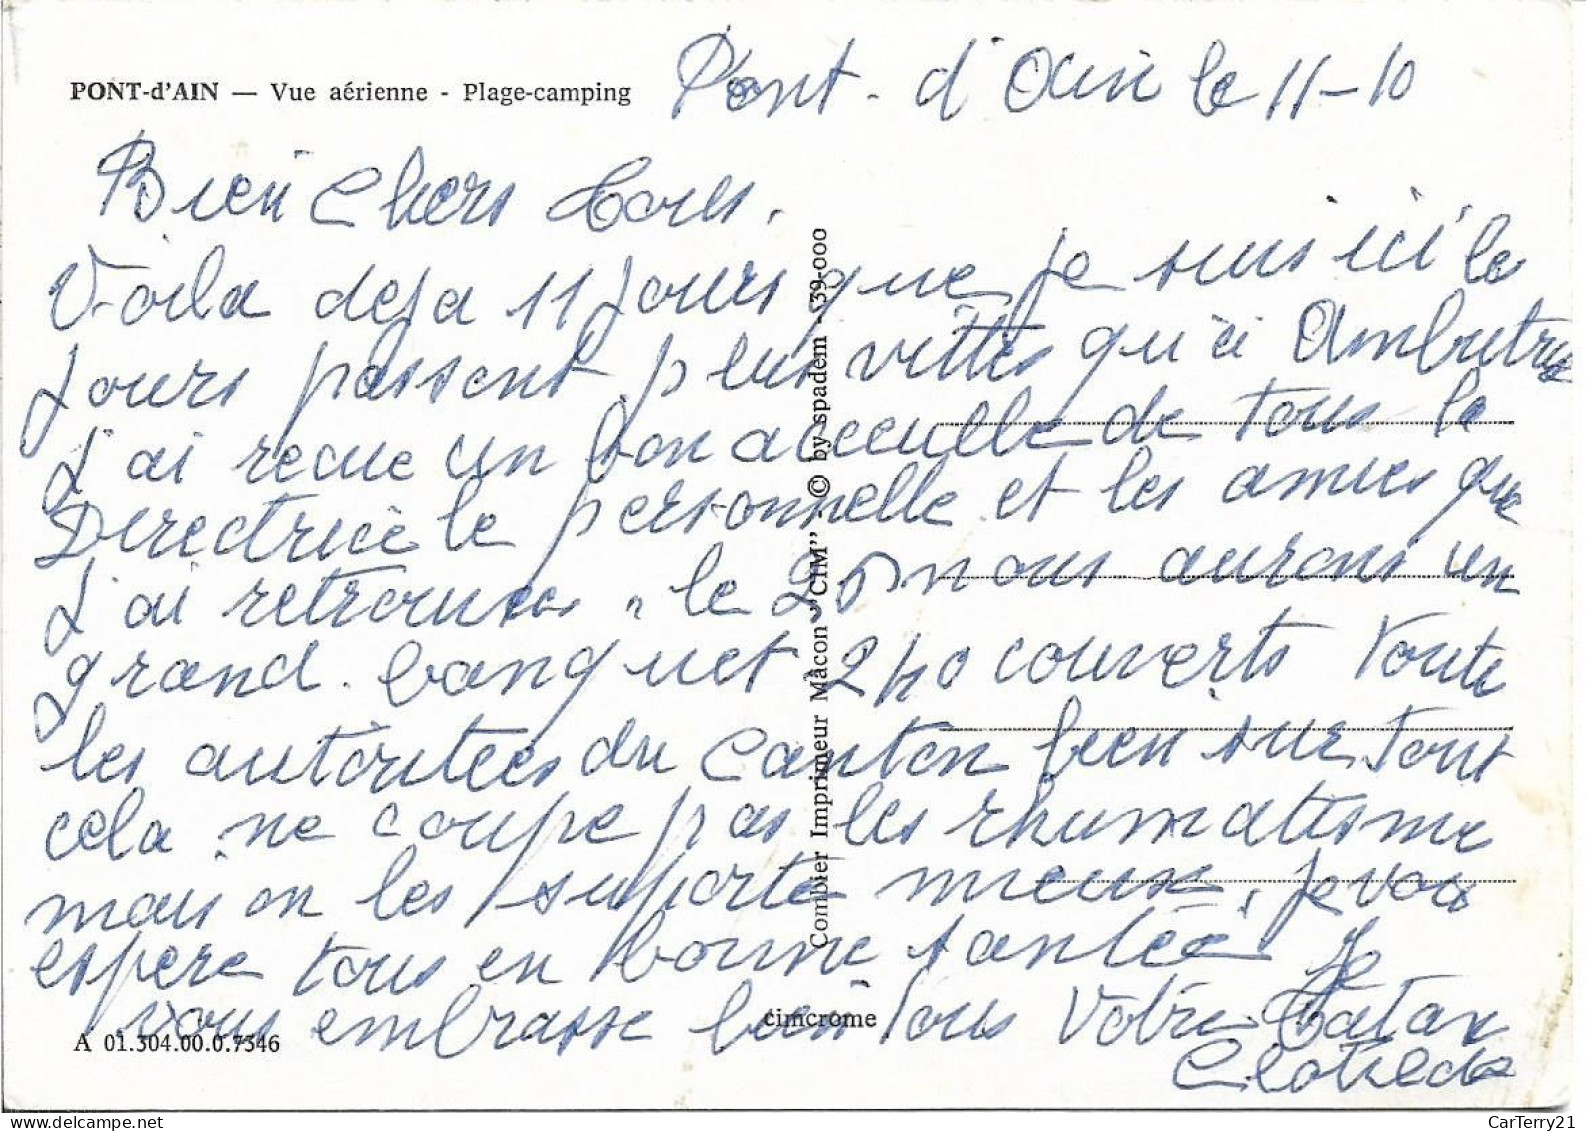 PONT-d'AIN — Vue aérienne - Plage-camping
Pont - d'Ain le 11-10
Bien Chers Tous.
Voila deja 11 jours que je suis ici le
jours passent plus vittes qu'a Ambutrix
J'ai recue un bon acceuille de tous la
Directrice le personnelle et les amies que
J'ai retrouvees, le 25 nous aurons un
grand banquet 240 couverts toute
les autoritees du Canton bien sur tout
cela ne coupe pas les rhumatisme
mais on les suporte mieux, Je vous
espere tous en bonne santée Je
vous embrasse bien tous Votre Tatan
Clotilde
Combier Imprimeur Mâcon "CIM" © by spadem - 39-000
cimcrome
A 01.304.00.0.7346
CarTerry21